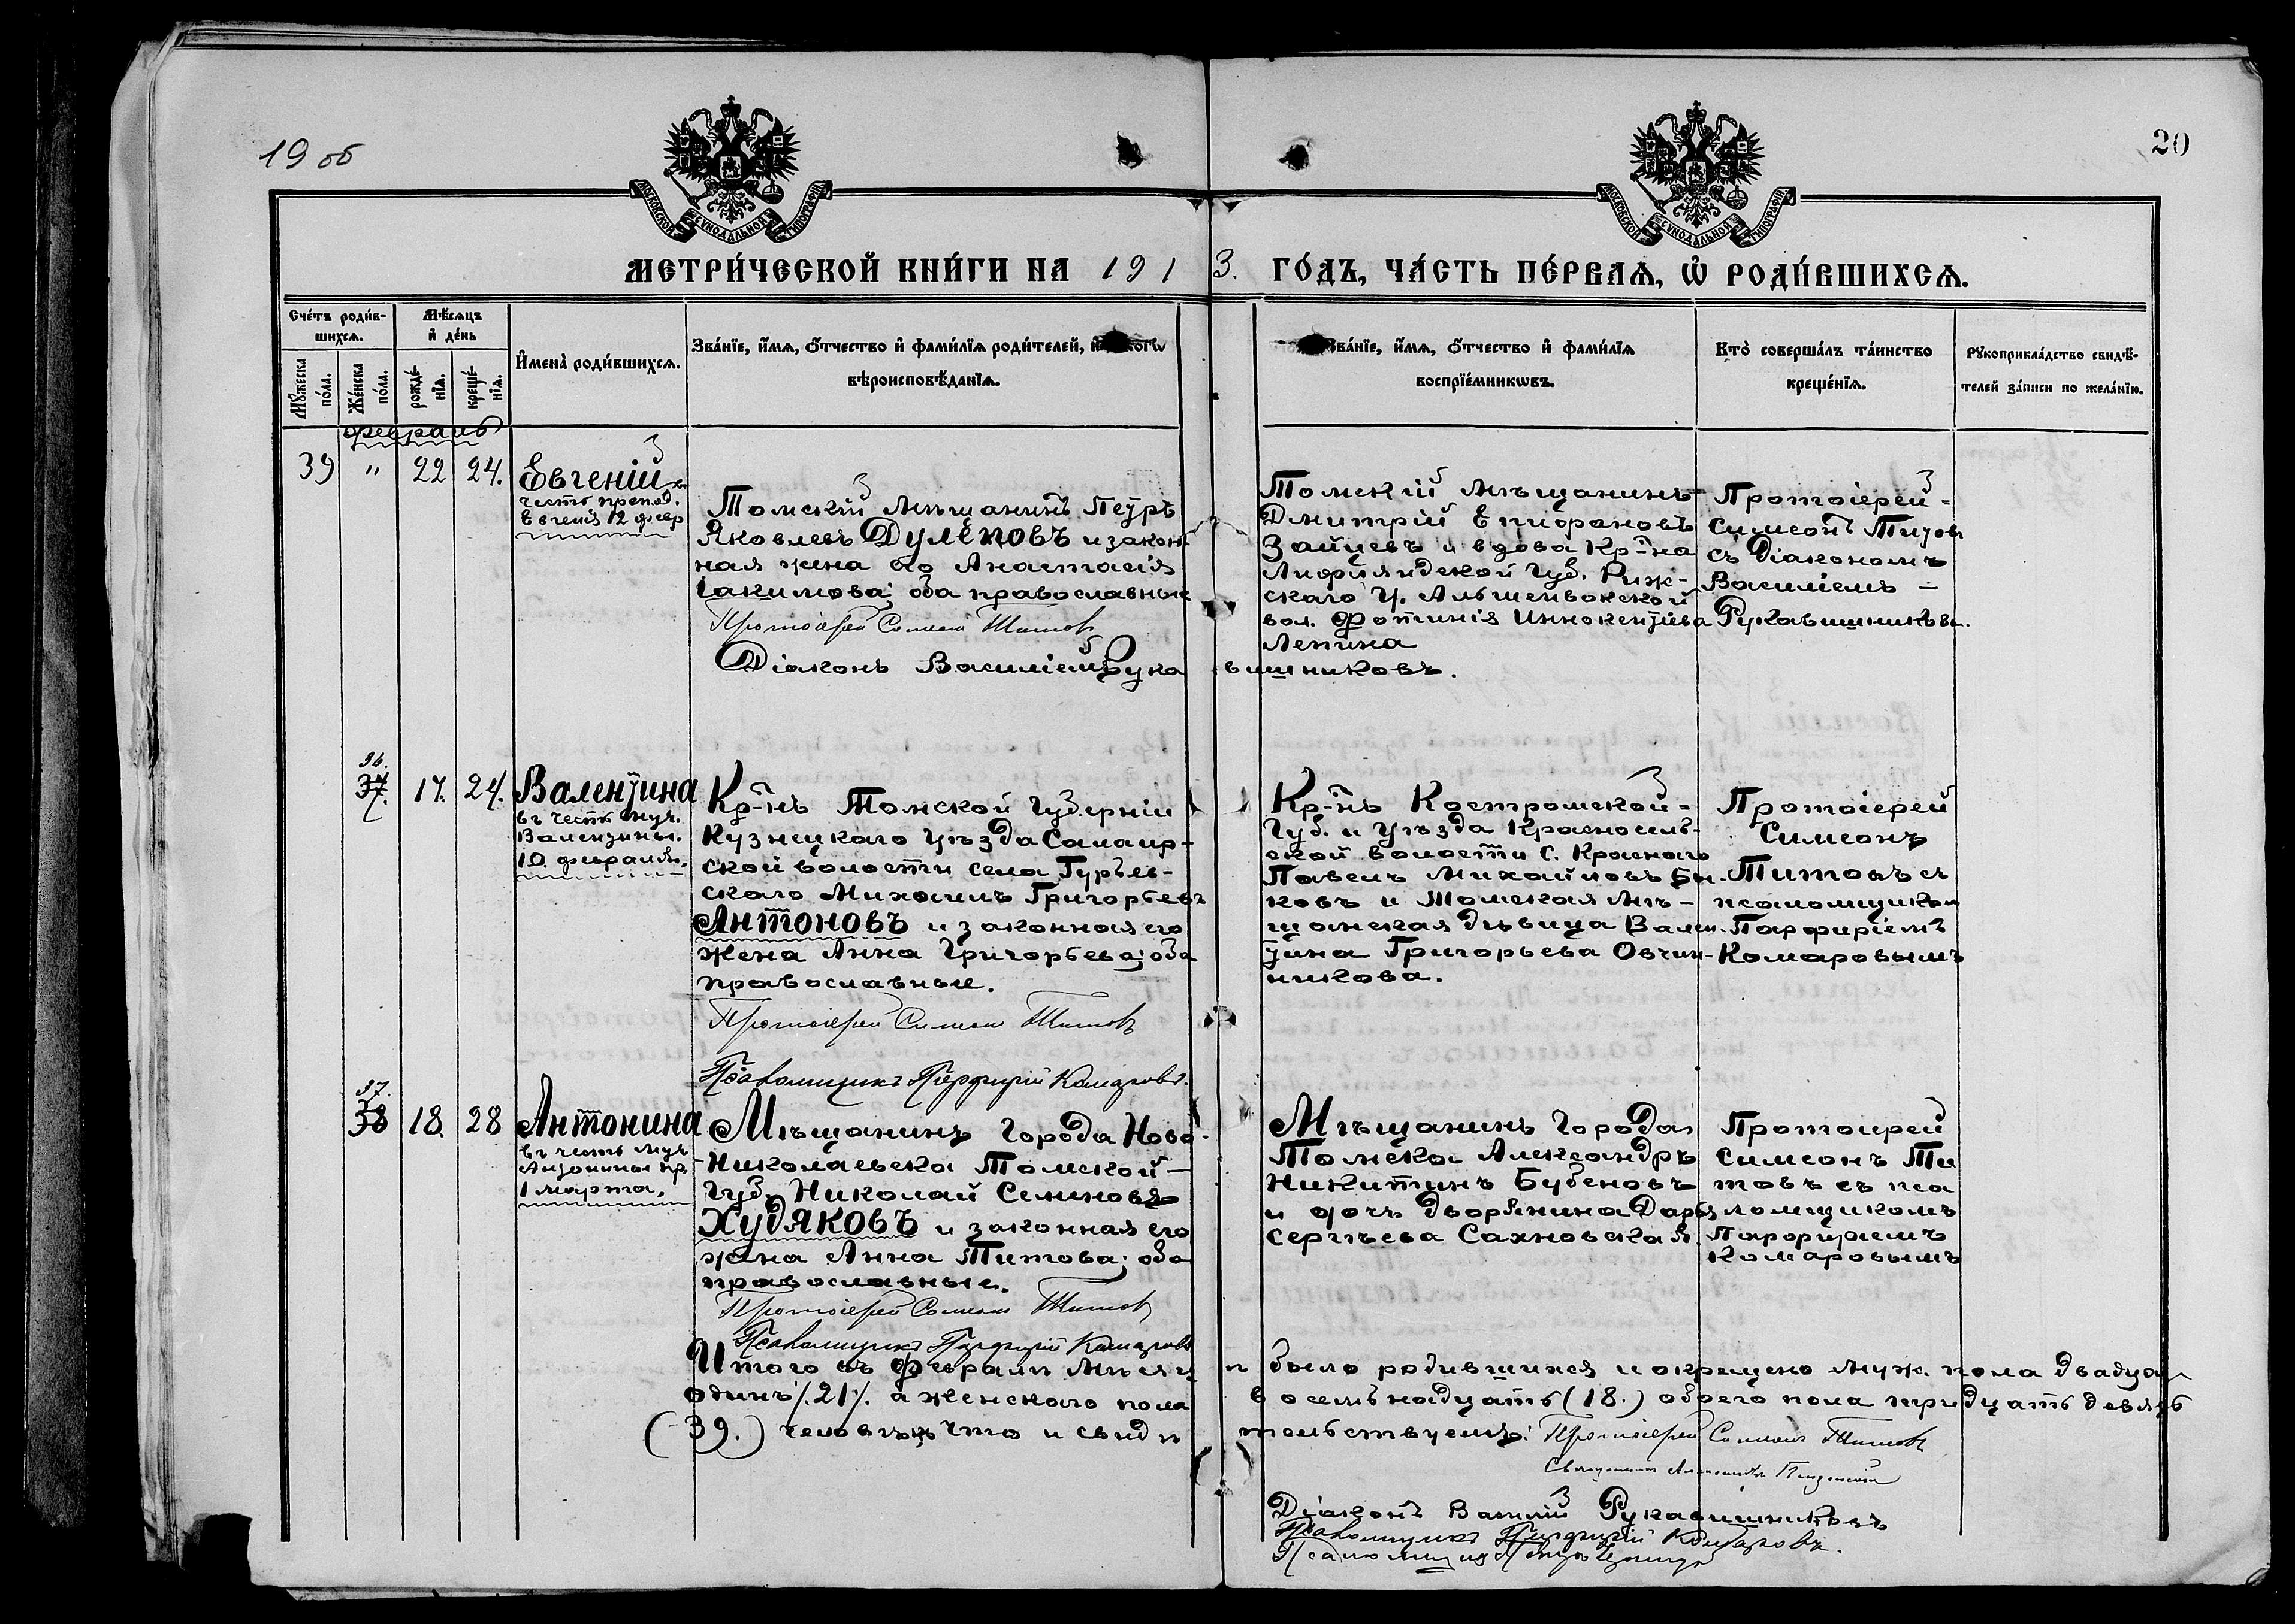 19 об
20
МОСКОВСКОЙ СѴНОДАЛЬНОЙ ТИПОГРАФІИ
МОСКОВСКОЙ СѴНОДАЛЬНОЙ ТИПОГРАФІИ
МЕТРИ́ЧЕСКОЙ КНИ́ГИ НА 191
3. ГО́ДЪ, ЧА́СТЬ ПЕ́РВАѦ, Ѡ҆ РОДИ́ВШИХСѦ.
Сче́тъ роди́в-
шихсѧ.
Мꙋ́жеска
по́ла.
Же́нска
по́ла.
Мѣ́сѧцъ
и҆ де́нь
рожде́-
нїѧ.
креще́-
нїѧ.
И҆мена̀ роди́вшихсѧ.
Зва́нїе, и҆́мѧ, ѻ҆́тчество и҆ фами́лїѧ роди́телей, и҆
вѣроисповѣ́данїѧ.
Зва́нїе, и҆́мѧ, ѻ҆́тчество и҆ фами́лїѧ
воспрїе́мникѡвъ.
Кто̀ соверша́лъ та́инство
креще́нїѧ.
Рꙋкоприкла́дство свидѣ́-
телей за́писи по жела́нїю.
февраль
39 „ 22 24.
Евгеній въ
честь препод.
Евгенія 12 февр
Томскій мѣщанинъ Петръ
Яковлевъ Дулеповъ и закон-
ная жена его Анастасія
Іакимова; оба православные
Протоіерей Симеонъ Титовъ
Діаконъ Василіемъ Рука
вишниковъ.
Томскій мѣщанинъ
Дмитрій Епифановъ
Зайцевъ и вдова Кр-на
Лифляндской губ. Риж-
скаго у. Альшенвонской
вол. Фотинія Иннокентіева
Лепина
Протоіерей
Симеонъ Титовъ
съ діакономъ
Василіемъ
Рукавишниковы.
36.
37. 17. 24.
Валентина
въ честь муч.
Валентины.
10 февраля.
Кр-нъ Томской губерніи
Кузнецкаго уѣзда Салаир-
ской волости села Гурьев-
скаго Михаилъ Григорьевъ
Антоновъ и законная его
жена Анна Григорьева; оба
православные.
Протоіерей Симеонъ Титовъ
Псаломщикъ Порфирій Комаровъ.
Кр-нъ Костромской
губ. и уѣзда Красносель-
ской волости с. Краснаго
Павелъ Михайловъ Бы-
ковъ и Томская мѣ-
щанская дѣвица Вален-
тина Григорьева Овчин-
никова.
Протоіерей
Симеонъ
Титовъ съ
псаломщиком
Парфиріемъ
Комаровымъ
37.
38 18. 28
Антонина
въ честь муч
Антонины пр.
1 марта.
Мѣщанинъ города Ново-
Николаевска Томской
губ. Николай Семиновъ
Худяковъ и законная его
жена Анна Титова; оба
православные.
Протоіерей Симеонъ Титовъ
Псаломщикъ Порфирій Комаровъ
Мѣщанинъ города
Томска Александръ
Никитинъ Бубеновъ
и дочь дворянина Дарья
Сергѣева Сахновская.
Протоиерей
Симеонъ Ти
товъ съ пса
ломщикомъ
Парфиріемъ
Комаровымъ
Итого въ феврали мѣсяц
ѣ было родившихся и окрещено муж. пола двадцать
одинъ /.21./. а женскаго пола
восемьнадцать (18.) обоего пола тридцать девять
(39.) человѣкъ что и свидѣ
тельствуемъ: Протоіерей Симеонъ Титовъ
Священникъ
Діаконъ Василій Рукавишниковъ
Псаломщикъ Порфирій Комаровъ.
Псаломщикъ